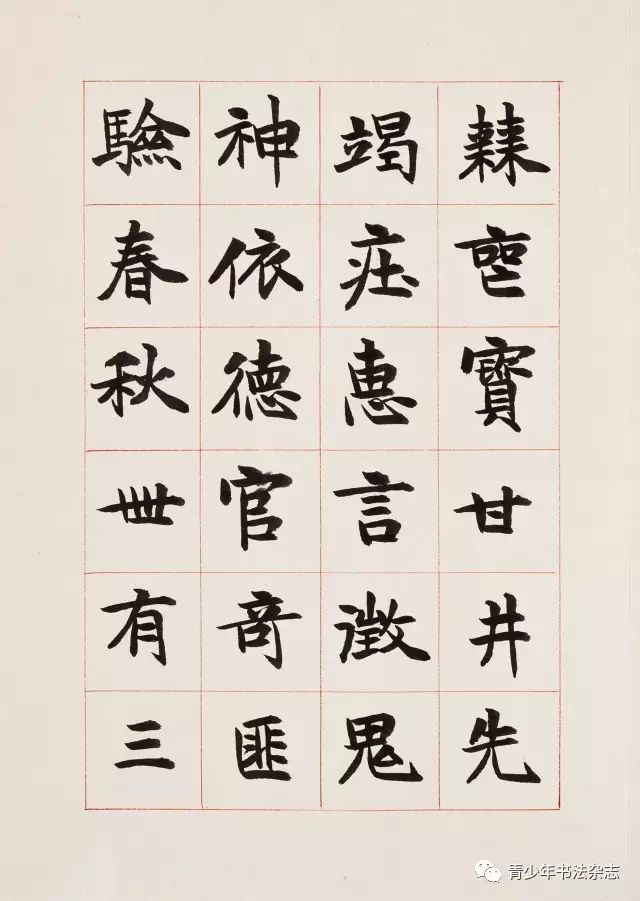 棘寶甘井先
竭庄惠言徵鬼
神依德官奇匪
驗春秋卌有三
青少年书法杂志